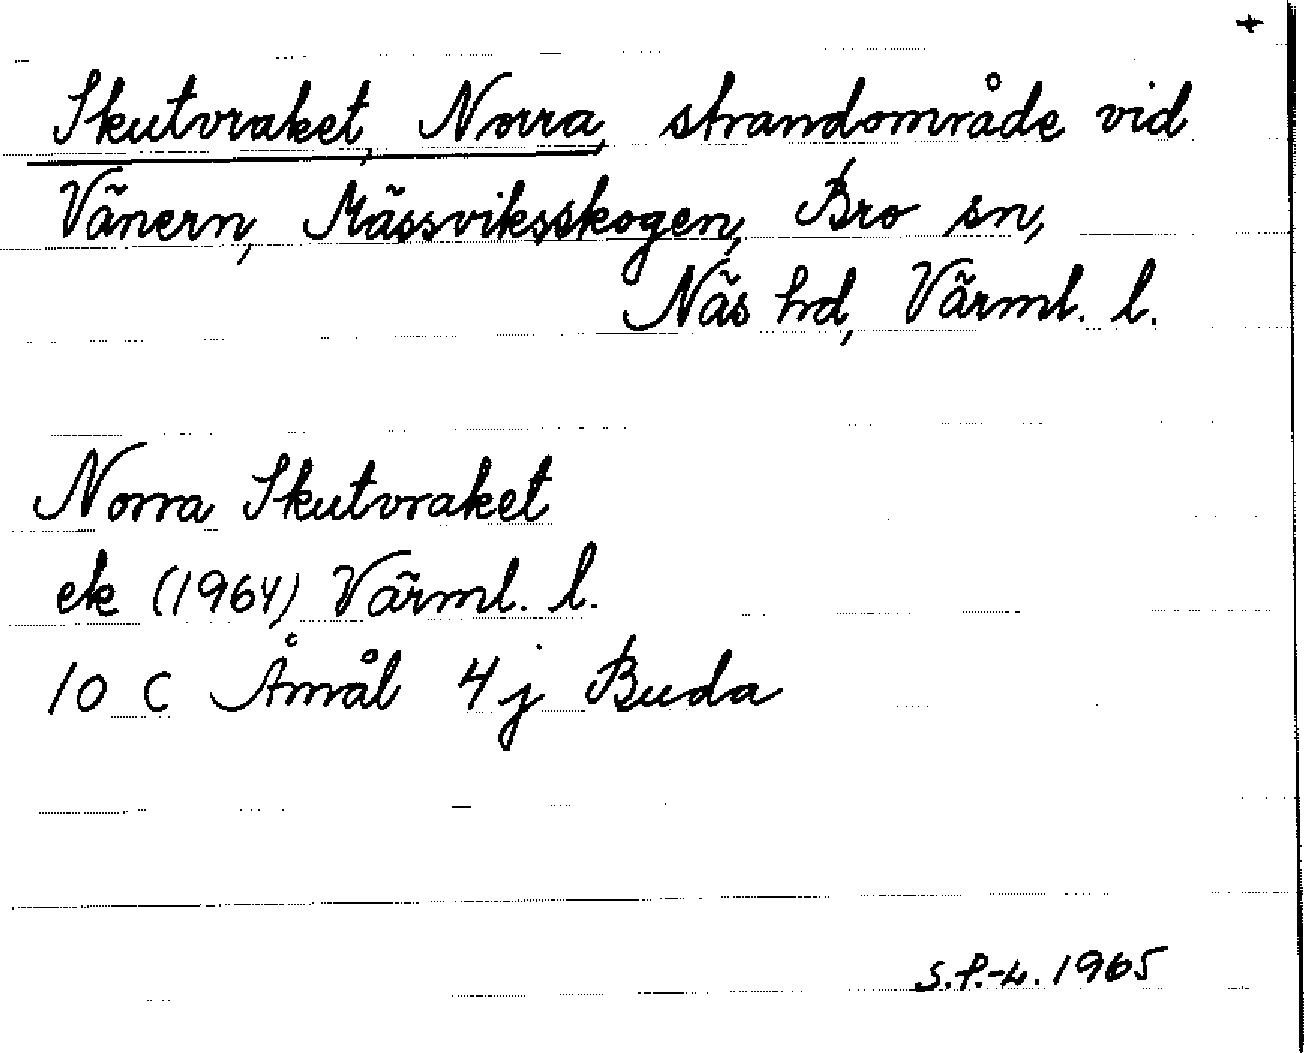 +
Skutvraket, Norra, strandområde vid
Vänern, Mässviksskogen, Bro sn,
Näs hd, Värml. l.
Norra Skutvraket
ek (1964) Värml. l.
10 C Åmål 4 j Buda
S.P.-L. 1965